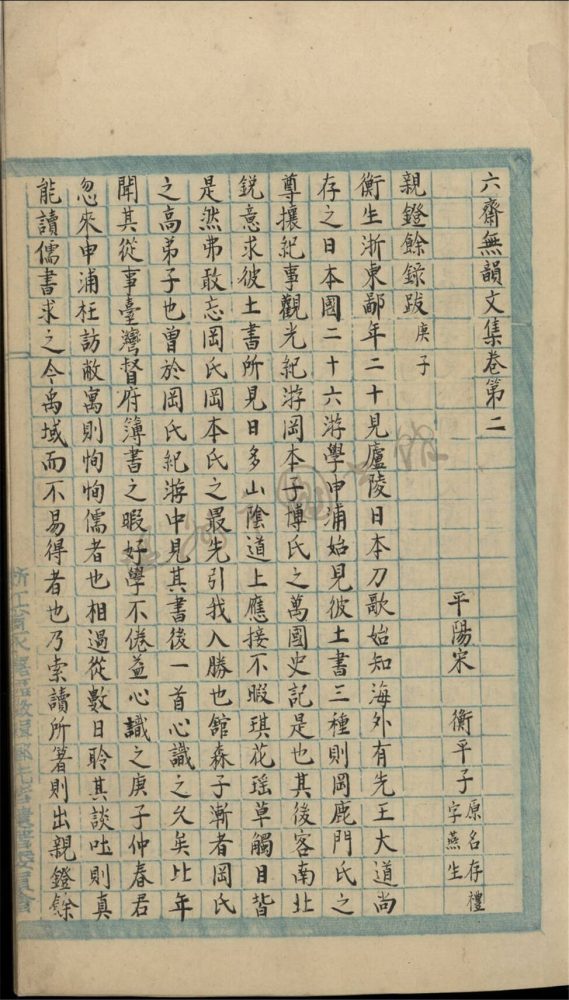 六齋無韻文集卷第二
平陽宋　衡平子 原名存禮
字燕生
親鐙餘錄跋 庚子
衡生浙東鄙年二十見廬陵日本刀歌始知海外有先王大道尚
存之日本國二十六游學申浦始見彼土書三種則岡鹿門氏之
尊攘紀事觀光紀游岡本子博氏之萬國史記是也其後客南北
銳意求彼土書所見日多山陰道上應接不暇琪花瑶草觸目皆
是然弗敢忘岡氏岡本氏之最先引我入勝也館森子漸者岡氏
之高弟子也曾於岡氏紀游中見其書後一首心識之久矣比年
聞其從事臺灣督府簿書之暇好學不倦益心識之庚子仲春君
忽來申浦枉訪敝寓則恂恂儒者也相過從數日聆其談吐則真
能讀儒書求之今禹域而不易得者也乃索讀所箸則出親鐙餘